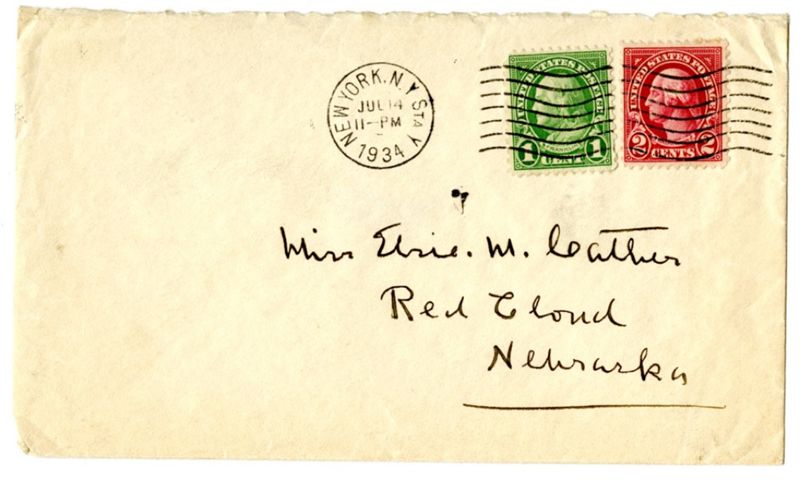 NEW YORK, N.Y. STA V
JUL 14
11-PM
1934
UNITED STATES POSTAGE
FRANKLIN
1 CENT 1
UNITED STATES POSTAGE
2 CENTS 2
Miss Elsie. M. Cather
Red Cloud
Nebraska